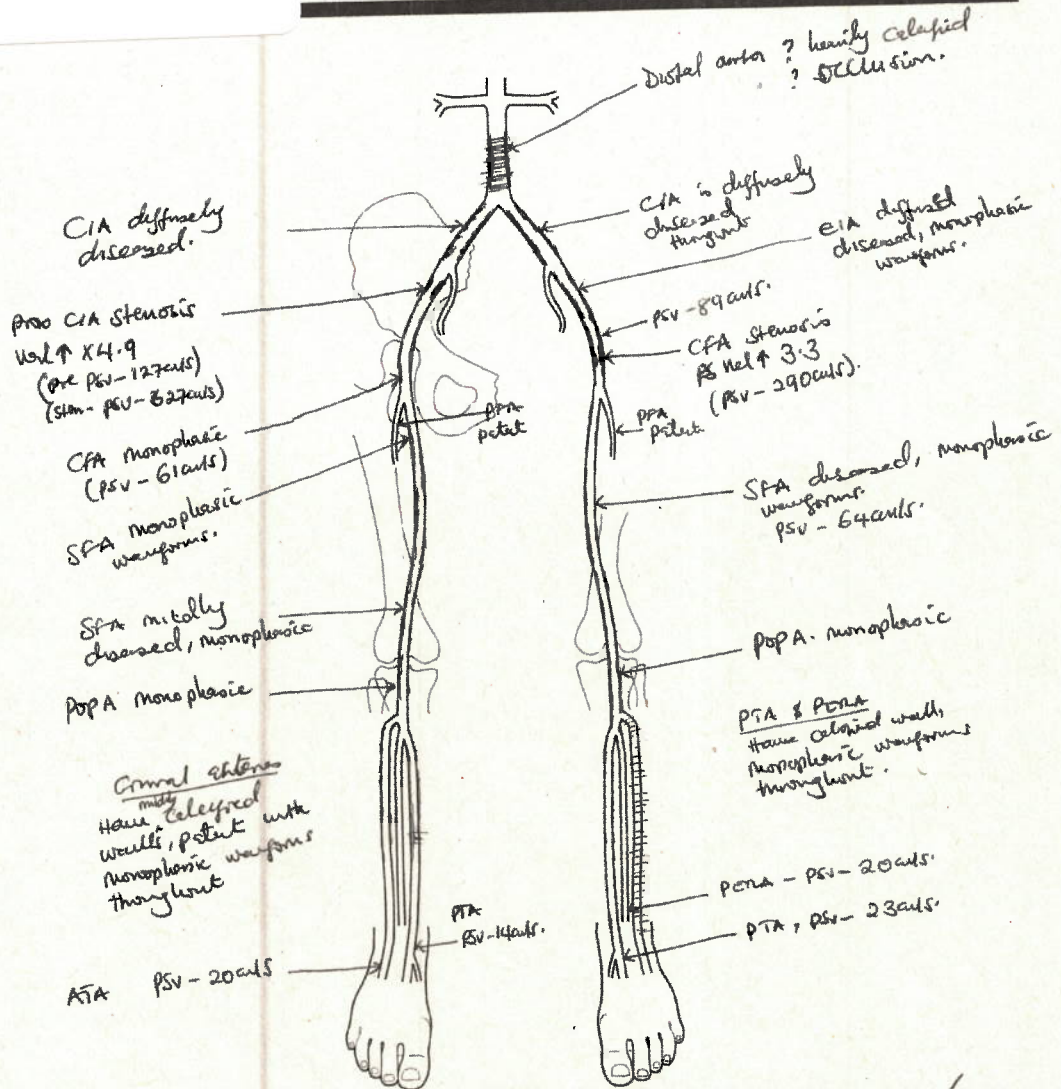 Distal aorta ? heavily calcified
? occlusion.
CIA diffusely
diseased.
CIA is diffusely
diseased
throughout
EIA diffused
diseased, monophasic
waveforms.
prox CIA stenosis
Vel ↑ X4.9
(pre PSV-127cm/s)
(sten- PSV-627cm/s)
PSV-89cm/s.
CFA stenosis
PS Vel ↑ 3.3
(PSV-290cm/s).
CFA monophasic
(PSV-61cm/s)
PFA
patent
PFA
patent
SFA monophasic
waveforms.
SFA diseased, monophasic
waveforms.
PSV-64cm/s.
SFA mildly
diseased, monophasic
POP A monophasic
POP A. monophasic
PTA & PERA
Have calcified walls,
monophasic waveforms
throughout.
Crural arteries
Have mildly calcified
walls, patent with
monophasic waveforms
throughout
PERA - PSV-20cm/s.
PTA, PSV-23cm/s.
PTA
PSV-14cm/s.
ATA PSV-20cm/s